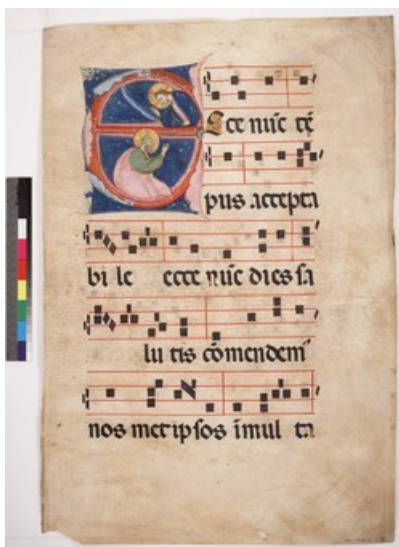 Ecce nūc tē
pus accepta
bi le ecce nūc dies sa
lu tis cōmendem
nos metipsos īmul ta